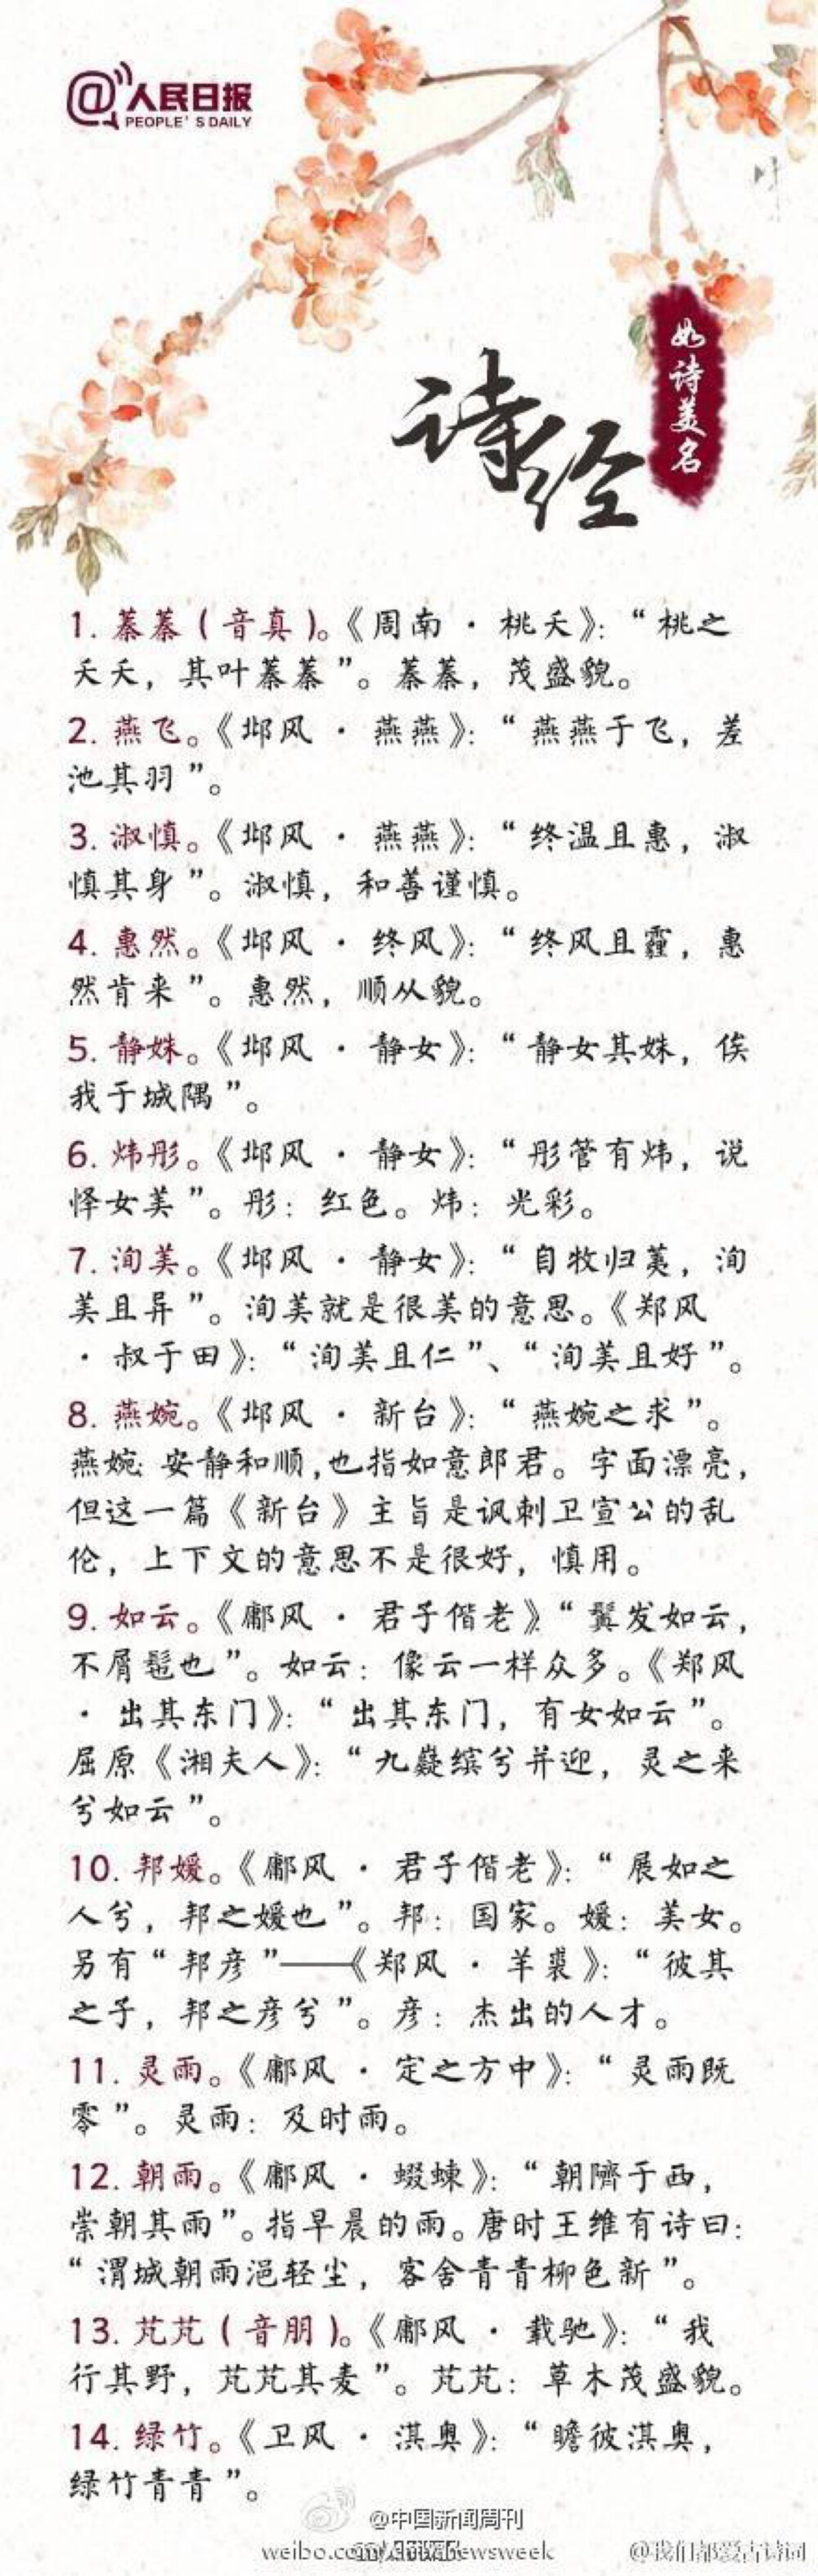 @人民日报
PEOPLE'S DAILY
如诗美名
诗经
1. 蓁蓁（音真）。《周南 · 桃夭》：“桃之
夭夭，其叶蓁蓁”。蓁蓁，茂盛貌。
2. 燕飞。《邶风 · 燕燕》：“燕燕于飞，差
池其羽”。
3. 淑慎。《邶风 · 燕燕》：“终温且惠，淑
慎其身”。淑慎，和善谨慎。
4. 惠然。《邶风 · 终风》：“终风且霾，惠
然肯来”。惠然，顺从貌。
5. 静姝。《邶风 · 静女》：“静女其姝，俟
我于城隅”。
6. 炜彤。《邶风 · 静女》：“彤管有炜，说
怿女美”。彤：红色。炜：光彩。
7. 洵美。《邶风 · 静女》：“自牧归荑，洵
美且异”。洵美就是很美的意思。《郑风
· 叔于田》：“洵美且仁”、“洵美且好”。
8. 燕婉。《邶风 · 新台》：“燕婉之求”。
燕婉：安静和顺，也指如意郎君。字面漂亮，
但这一篇《新台》主旨是讽刺卫宣公的乱
伦，上下文的意思不是很好，慎用。
9. 如云。《鄘风 · 君子偕老》“鬒发如云，
不屑髢也”。如云：像云一样众多。《郑风
· 出其东门》：“出其东门，有女如云”。
屈原《湘夫人》：“九嶷缤兮并迎，灵之来
兮如云”。
10. 邦媛。《鄘风 · 君子偕老》：“展如之
人兮，邦之媛也”。邦：国家。媛：美女。
另有“邦彦”——《郑风 · 羊裘》：“彼其
之子，邦之彦兮”。彦：杰出的人才。
11. 灵雨。《鄘风 · 定之方中》：“灵雨既
零”。灵雨：及时雨。
12. 朝雨。《鄘风 · 蝃蝀》：“朝隮于西，
崇朝其雨”。指早晨的雨。唐时王维有诗曰：
“渭城朝雨浥轻尘，客舍青青柳色新”。
13. 芃芃（音朋）。《鄘风 · 载驰》：“我
行其野，芃芃其麦”。芃芃：草木茂盛貌。
14. 绿竹。《卫风 · 淇奥》：“瞻彼淇奥，
绿竹青青”。
@中国新闻周刊
@我们都爱古诗词